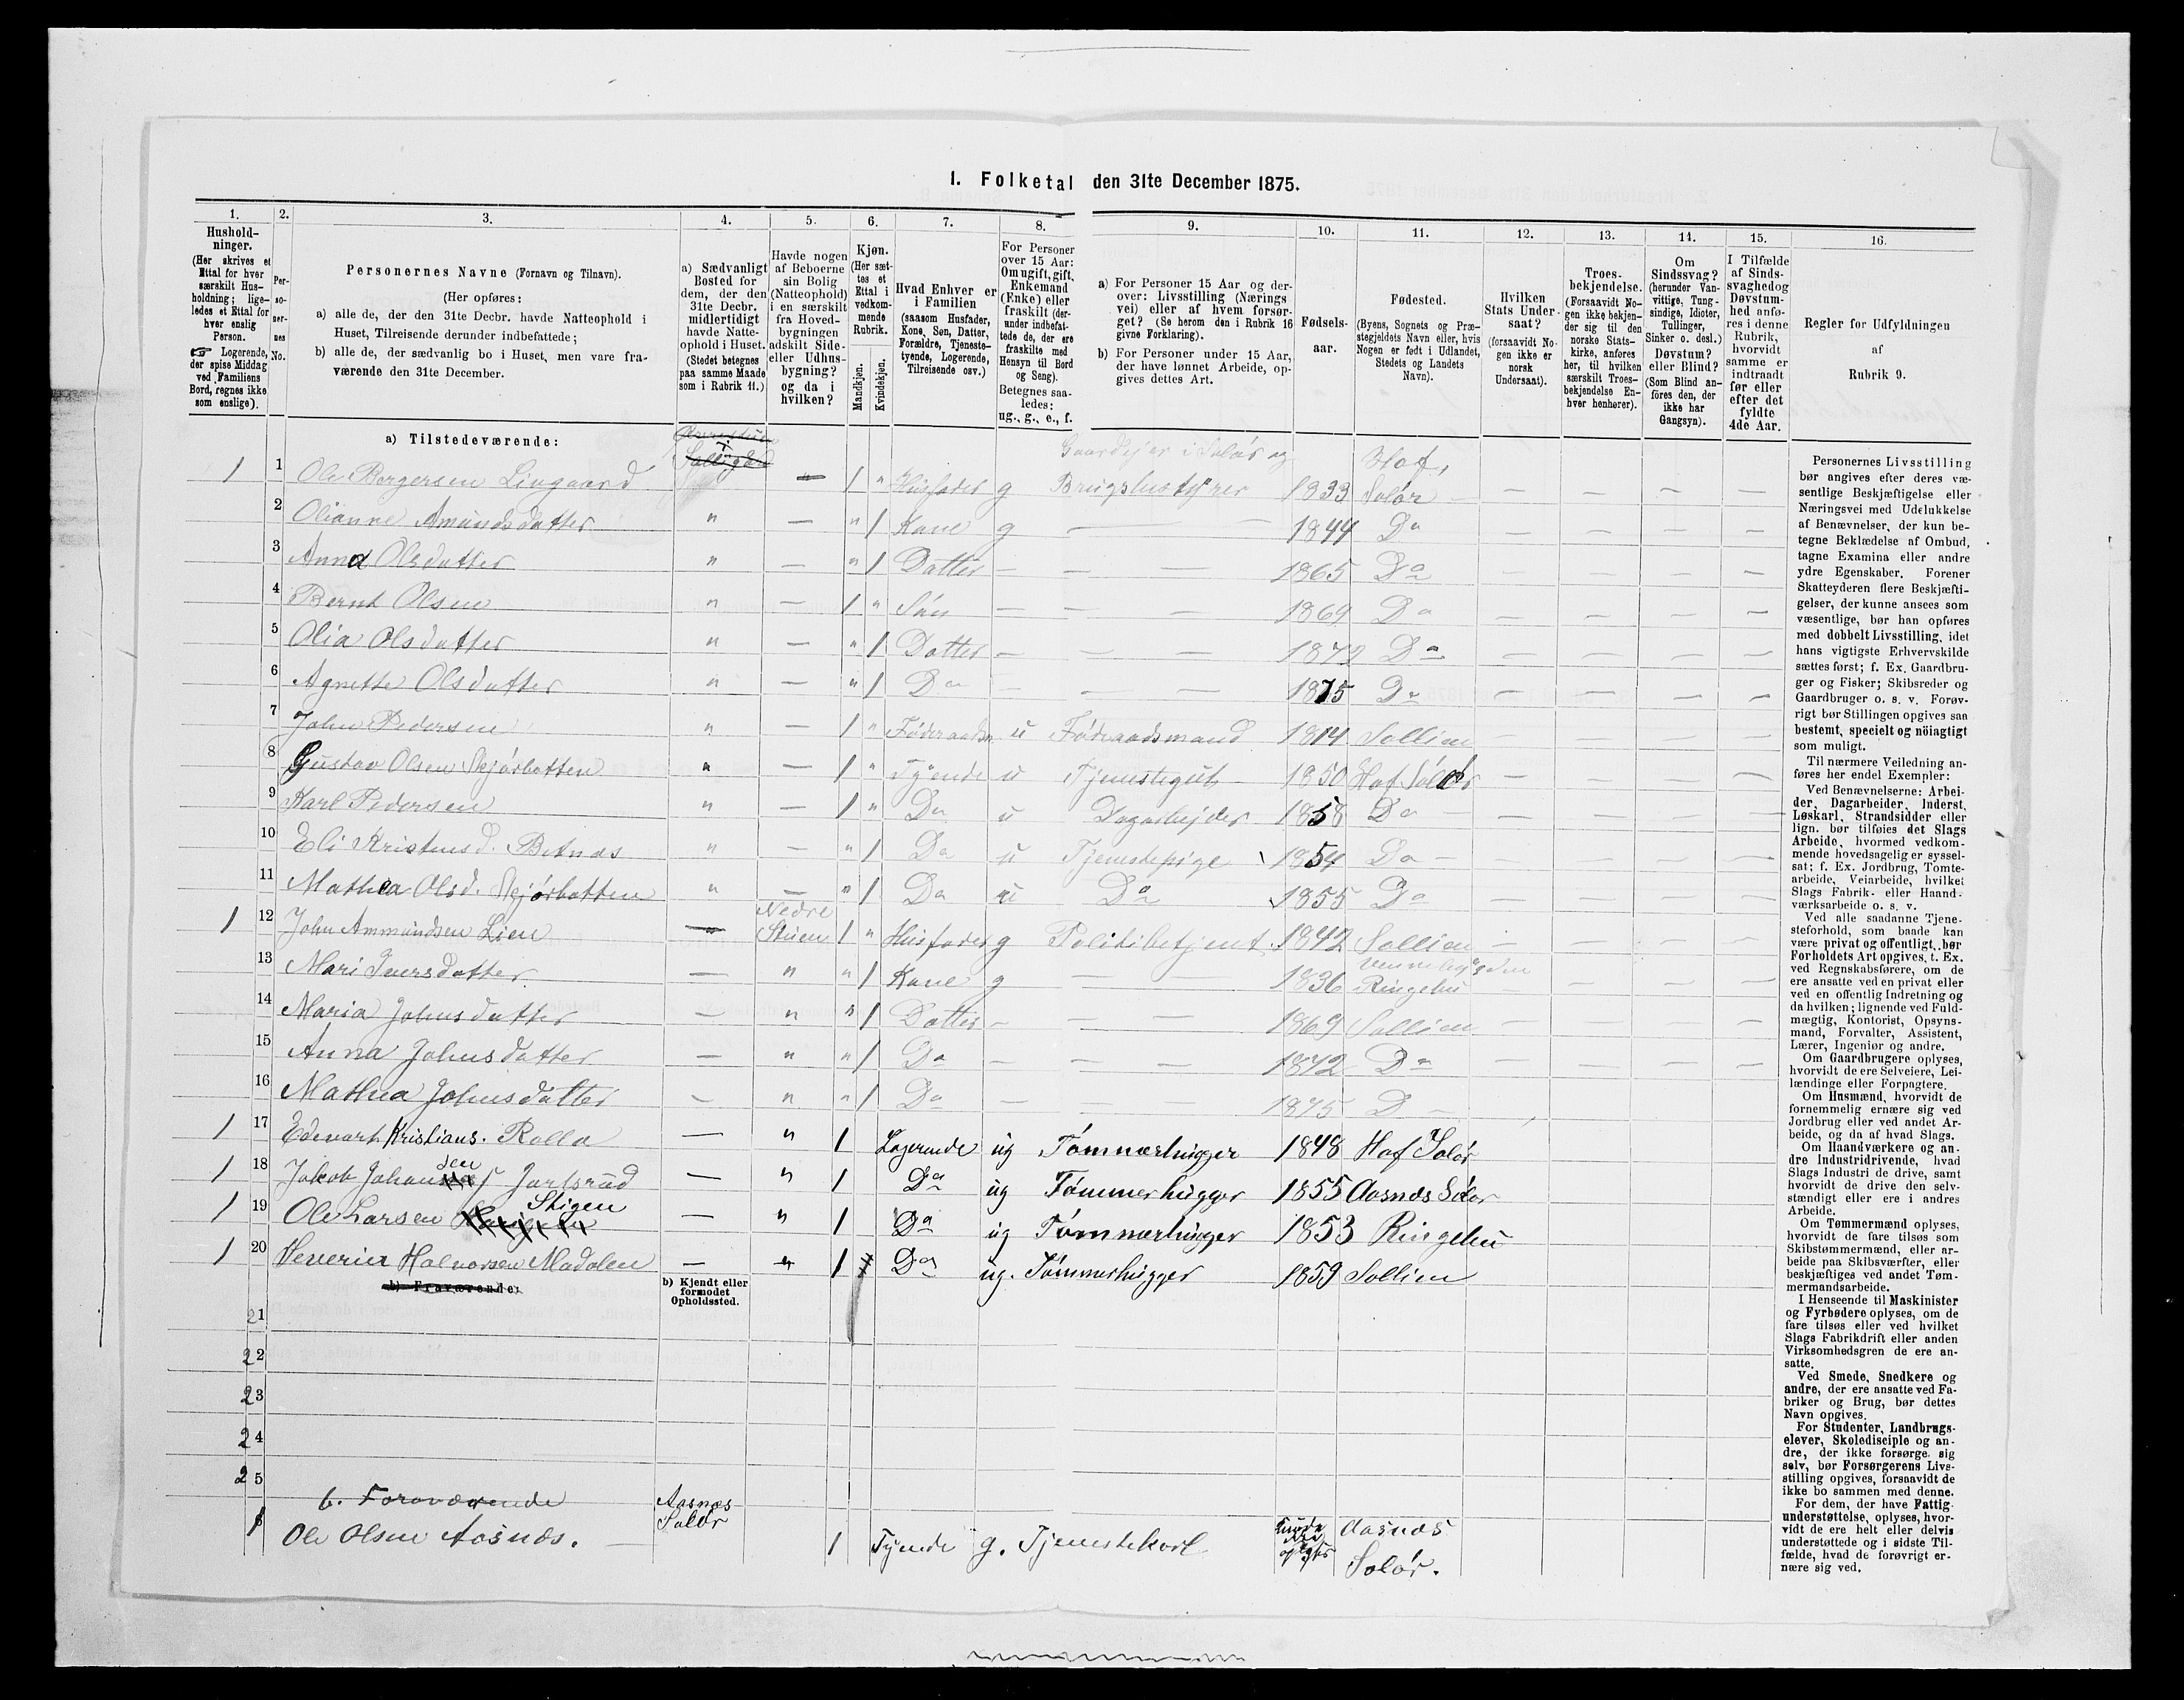 1. Folketal den 31te December 1875.
1. 2. 3. 4. 5. 6. 7. 8. 9. 10. 11. 12. 13. 14. 15. 16.
Husholdninger.
(Her skrives et Ettal for hver særskilt Husholdning; ligeledes et Ettal for hver enslig Person.
☞ Logerende, der spise Middag ved Familiens Bord, regnes ikke som enslige).
Personernes No.
Personernes Navne (Fornavn og Tilnavn).
(Her opføres:
a) alle de, der den 31te Decbr. havde Natteophold i Huset, Tilreisende derunder indbefattede;
b) alle de, der sædvanlig bo i Huset, men vare fraværende den 31te December.
a) Sædvanligt Bosted for dem, der den 31te Decbr. midlertidigt havde Natteophold i Huset.
(Stedet betegnes paa samme Maade som i Rubrik 11.)
Havde nogen af Beboerne sin Bolig (Natteophold) i en særskilt fra Hovedbygningen adskilt Side- eller Udhusbygning? og da i hvilken?
Kjøn.
(Her sættes et Ettal i vedkommende Rubrik.
Mandkjøn. Kvindekjøn.
Hvad Enhver er i Familien
(saasom Husfader, Kone, Søn, Datter, Forældre, Tjenestetyende, Logerende, Tilreisende osv.)
For Personer over 15 Aar: Om ugift, gift, Enkemand (Enke) eller fraskilt (derunder indbefattede de, der ere fraskilte med Hensyn til Bord og Seng).
Betegnes saaledes: ug., g., e., f.
a) For Personer 15 Aar og derover: Livsstilling (Næringsvei) eller af hvem forsørget? (Se herom den i Rubrik 16 givne Forklaring).
b) For Personer under 15 Aar, der have lønnet Arbeide, opgives dettes Art.
Fødselsaar.
Fødested.
(Byens, Sognets og Præstegjeldets Navn eller, hvis Nogen er født i Udlandet, Stedets og Landets Navn).
Hvilken Stats Undersaat?
(forsaavidt Nogen ikke er norsk Undersaat).
Troesbekjendelse.
(Forsaavidt Nogen ikke bekjender sig til den norske Statskirke, anføres her, til hvilken særskilt Troesbekjendelse Enhver henhører).
Om Sindssvag? (herunder Vanvittige, Tungsindige, Idioter, Tullinger, Sinker o. desl.) Døvstum? eller Blind? (Som Blind anføres den, der ikke har Gangsyn).
I Tilfælde af Sindssvaghed og Døvstumhed anføres i denne Rubrik, hvorvidt samme er indtraadt før eller efter det fyldte 4de Aar.
Regler for Udfyldningen
af
Rubrik 9.
a) Tilstedeværende:
Gaardejer i Solør og Hof,
1 1 Ole Bergersen Lingaard — 1 " Husfader g Brugsbestyrer 1833 Solør — — — —
2 Olianne Amundsdatter " — " 1 Kone g — 1844 Do — — — —
3 Anna Olsdatter " — " 1 Datter — — — 1865 Do — — — —
4 Bernt Olsen " — 1 " Søn — — — 1869 Do — — — —
5 Olia Olsdatter " — " 1 Datter — — — 1872 Do — — — —
6 Agnette Olsdatter " — " 1 Do — — — 1875 Do — — — —
7 John Pedersen " — 1 " Føderaadsm u Føderaadsmand 1814 Sollien — — — —
8 Gustav Olsen Skjørbotten " — 1 " Tyende u Tjenestegut 1850 Hof Solør — — — —
9 Karl Pedersen " — 1 " Do u Dagarbejder 1858 Do — — — —
10 Eli Kristensd. Betnæs " — " 1 Do u Tjenestepige 1854 Do — — — —
11 Mathea Olsd. Skjørbotten " — " 1 Do u Do 1855 Do — — — —
Nedre
1 12 John Ammundsen Lien Stuen 1 " Husfader g Politibetjent 1842 Sollien — — — —
13 Mari Iversdatter — " " 1 Kone g — 1836 Ringebu — — — —
14 Maria Johnsdatter — " " 1 Datter — — — 1869 Sollien — — — —
15 Anna Johnsdatter — " " 1 Do — — — 1872 Do — — — —
16 Mathea Johnsdatter — " " 1 Do — — — 1875 D —
1 17 Edevart Kristians. Rolla — " 1 Logerende ug Tømmerhugger 1848 Hof Solør
1 18 Jakob Johansen Jarlsrud — " 1 Do ug Tømmerhugger 1855 Aasnæs Solør
1 19 Ole Larsen Stigen — " 1 Do ug Tømmerhugger 1853 Ringebu
1 20 Halvorsen Madolen — " 1 Do ug. Tømmerhugger 1859 Sollien
b) Fraværende:
b) Kjendt eller formodet Opholdssted.
21
22
23
24
25
b. Fraværende
Aasnæs Solør
1 Ole Olsen Aasnæs. — 1 Tyende g. Tjenestekarl Aasnæs Solør.
Personernes Livsstilling
bør angives efter deres væ-
sentlige Beskjæftigelse eller
Næringsvei med Udelukkelse
af Benævnelser, der kun be-
tegne Beklædelse af Ombud,
tagne Examina eller andre
ydre Egenskaber. Forener
Skatteyderen flere Beskjæfti-
gelser, der kunne ansees som
væsentlige, bør han opføres
med dobbelt Livsstilling, idet
hans vigtigste Erhvervskilde
sættes først; f. Ex. Gaardbru-
ger og Fisker; Skibsreder og
Gaardbruger o. s. v. Forøv-
rigt bør Stillingen opgives saa
bestemt, specielt og nöiagtigt
som muligt.
Til nærmere Veiledning an-
føres her endel Exempler:
Ved Benævnelserne: Arbei-
der, Dagarbeider, Inderst,
Løskarl, Strandsidder eller
lign. bør tilføies det Slags
Arbeide, hvormed vedkom-
mende hovedsagelig er syssel-
sat; f. Ex. Jordbrug, Tomte-
arbeide, Veiarbeide, hvilket
Slags Fabrik- eller Haand-
værksarbeide o. s. v.
Ved alle saadanne Tjene-
steforhold, som baade kan
være privat og offentligt, bør
Forholdets Art opgives, t. Ex.
ved Regnskabsførere, om de
ere ansatte ved en privat eller
ved en offentlig Indretning og
da hvilken; lignende ved Fuld-
mægtig, Kontorist, Opsyns-
mand, Forvalter, Assistent,
Lærer, Ingeniør og andre.
Om Gaardbrugere oplyses,
hvorvidt de ere Selveiere, Lei-
lændinge eller Forpagtere.
Om Husmænd, hvorvidt de
fornemmelig ernære sig ved
Jordbrug eller ved andet Ar-
beide, og da af hvad Slags.
Om Haandværkere og an-
dre Industridrivende, hvad
Slags Industri de drive, samt
hvorvidt de drive den selv-
stændigt eller ere i andres
Arbeide.
Om Tømmermænd oplyses,
hvorvidt de fare tilsøs som
Skibstømmermænd, eller ar-
beide paa Skibsværfter, eller
beskjæftiges ved andet Tøm-
mermandsarbeide.
I Henseende til Maskinister
og Fyrbødere oplyses, om de
fare tilsøs eller ved hvilket
Slags Fabrikdrift eller anden
Virksomhedsgren de ere an-
satte.
Ved Smede, Snedkere og
andre, der ere ansatte ved Fa-
briker og Brug, bør dettes
Navn opgives.
For Studenter, Landbrugs-
elever, Skoledisciple og an-
dre, der ikke forsørge sig
selv, bør Forsørgerens Livs-
stilling opgives, forsaavidt de
ikke bo sammen med denne.
For dem, der have Fattig-
understøttelse, oplyses, hvor-
vidt de ere helt eller delvis
understøttede og i sidste Til-
fælde, hvad de forøvrigt er-
nære sig ved.